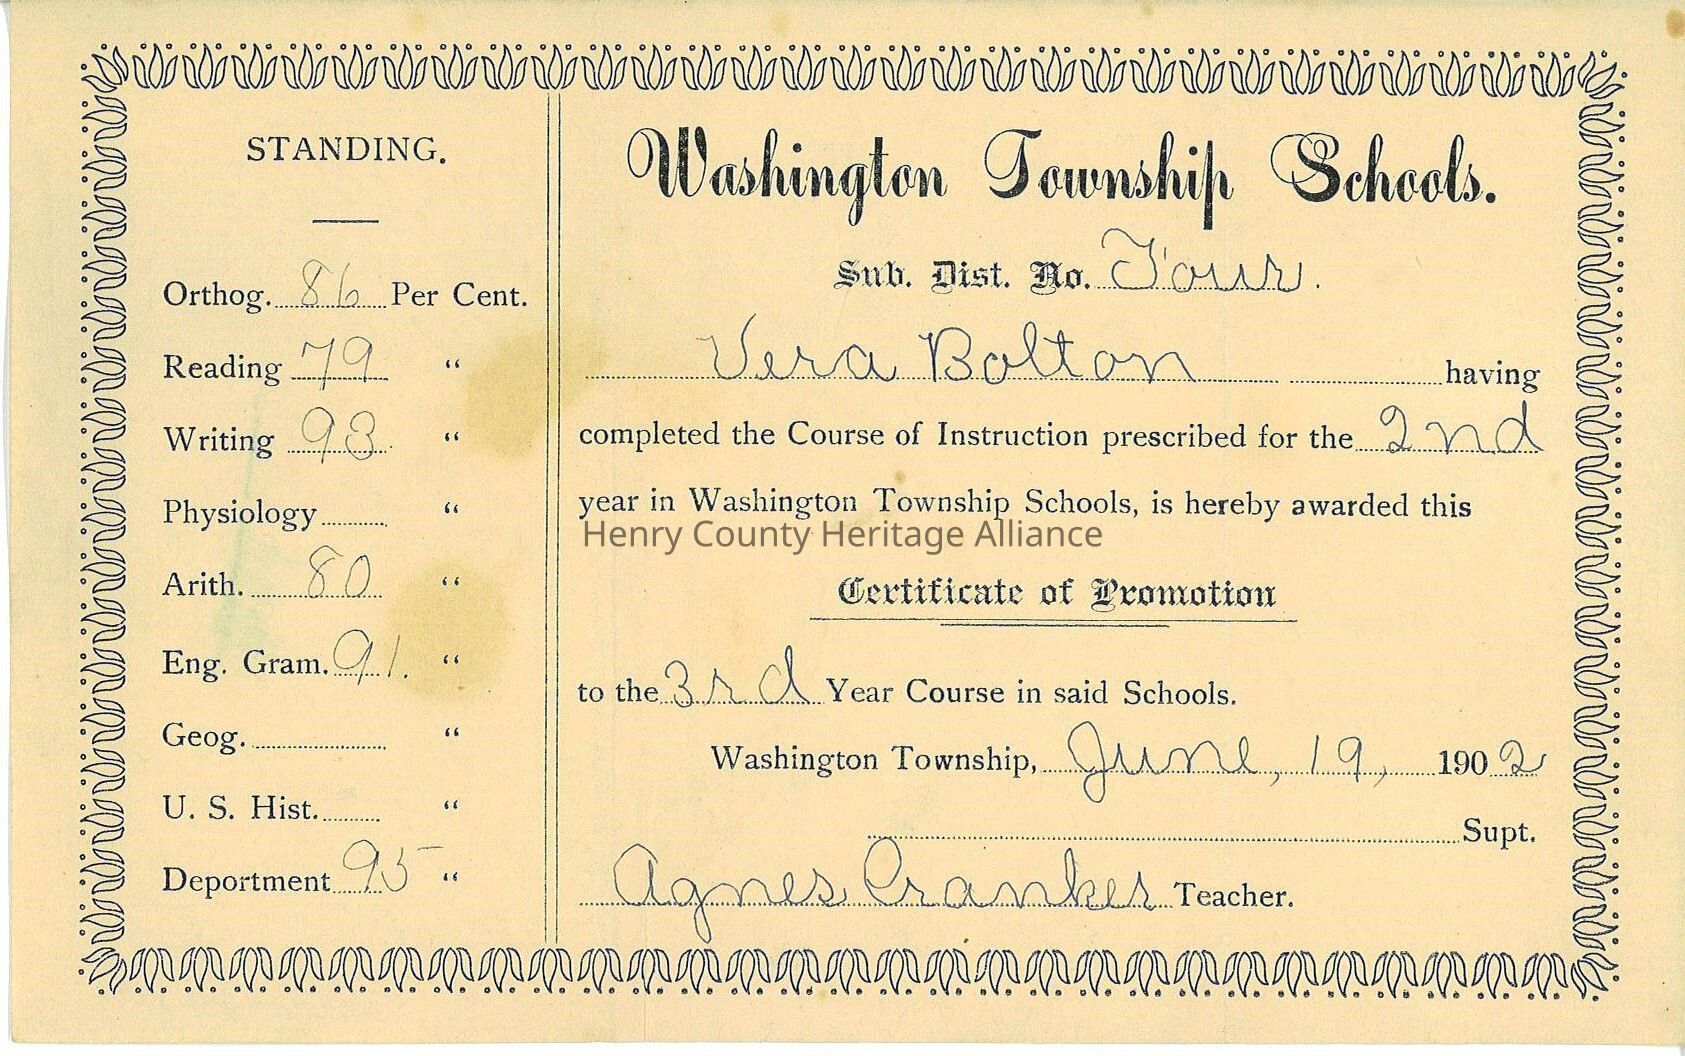 STANDING.
Orthog. 86 Per Cent.
Reading 79 "
Writing 93 "
Physiology "
Arith. 80 "
Eng. Gram. 91. "
Geog. "
U. S. Hist. "
Deportment 95 "
Washington Township Schools.
Sub. Dist. No. Four.
Vera Bolton having
completed the Course of Instruction prescribed for the 2nd
year in Washington Township Schools, is hereby awarded this
Henry County Heritage Alliance
Certificate of Promotion
to the 3rd Year Course in said Schools.
Washington Township, June, 19, 1902
Supt.
Agnes Crankes Teacher.